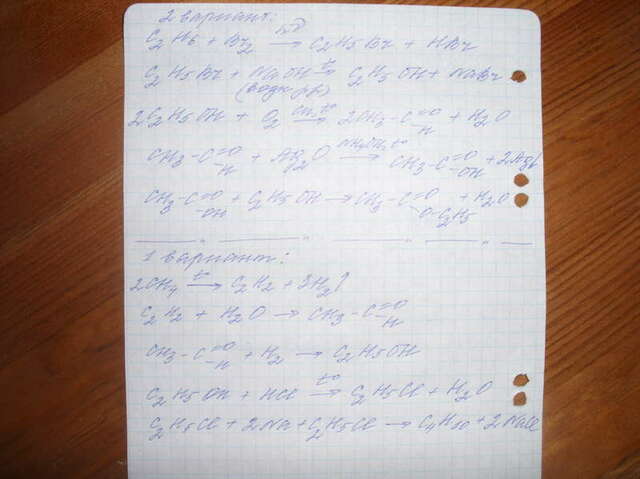 2 вариант:
C2H6 + Br2 hν → C2H5Br + HBr
C2H5Br + NaOH t → C2H5OH + NaBr
(водн. рв)
2C2H5OH + O2 Cu, t° → 2CH3-C=O -H + H2O
CH3-C=O -H + Ag2O NH4OH, t° → CH3-C=O -OH + 2Ag↓
CH3-C=O -OH + C2H5OH → CH3-C=O -O-C2H5 + H2O
1 вариант:
2CH4 t° → C2H2 + 3H2↑
C2H2 + H2O → CH3-C=O -H
CH3-C=O -H + H2 → C2H5OH
C2H5OH + HCl t° → C2H5Cl + H2O
C2H5Cl + 2Na + C2H5Cl → C4H10 + 2NaCl